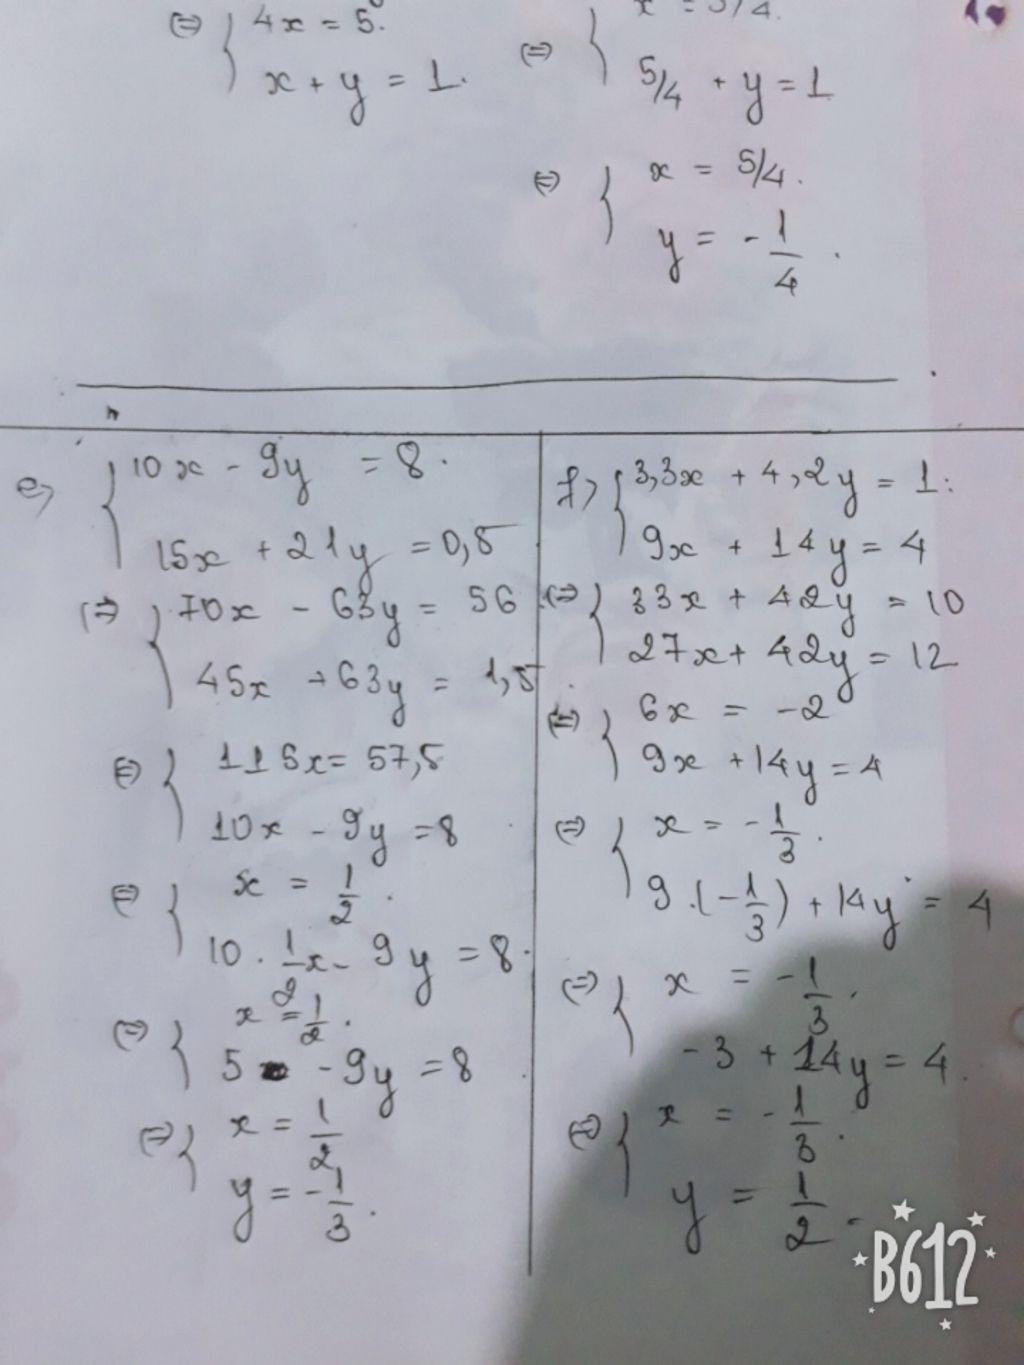 ⇔ { 4x = 5.
x + y = 1.
⇔ { x = 5/4.
5/4 + y = 1
⇔ { x = 5/4.
y = -1/4.
e, { 10x - 9y = 8.
15x + 21y = 0,5
⇔ { 70x - 63y = 56
45x + 63y = 1,5
⇔ { 115x = 57,5
10x - 9y = 8
⇔ { x = 1/2.
10 . 1/2x - 9y = 8.
⇔ { x = 1/2.
5 - 9y = 8
⇔ { x = 1/2
y = -1/3.
f, { 3,3x + 4,2y = 1.
9x + 14y = 4
⇔ { 33x + 42y = 10
27x + 42y = 12
⇔ { 6x = -2
9x + 14y = 4
⇔ { x = -1/3.
9.(-1/3) + 14y = 4
⇔ { x = -1/3.
-3 + 14y = 4.
⇔ { x = -1/3.
y = 1/2.
B612